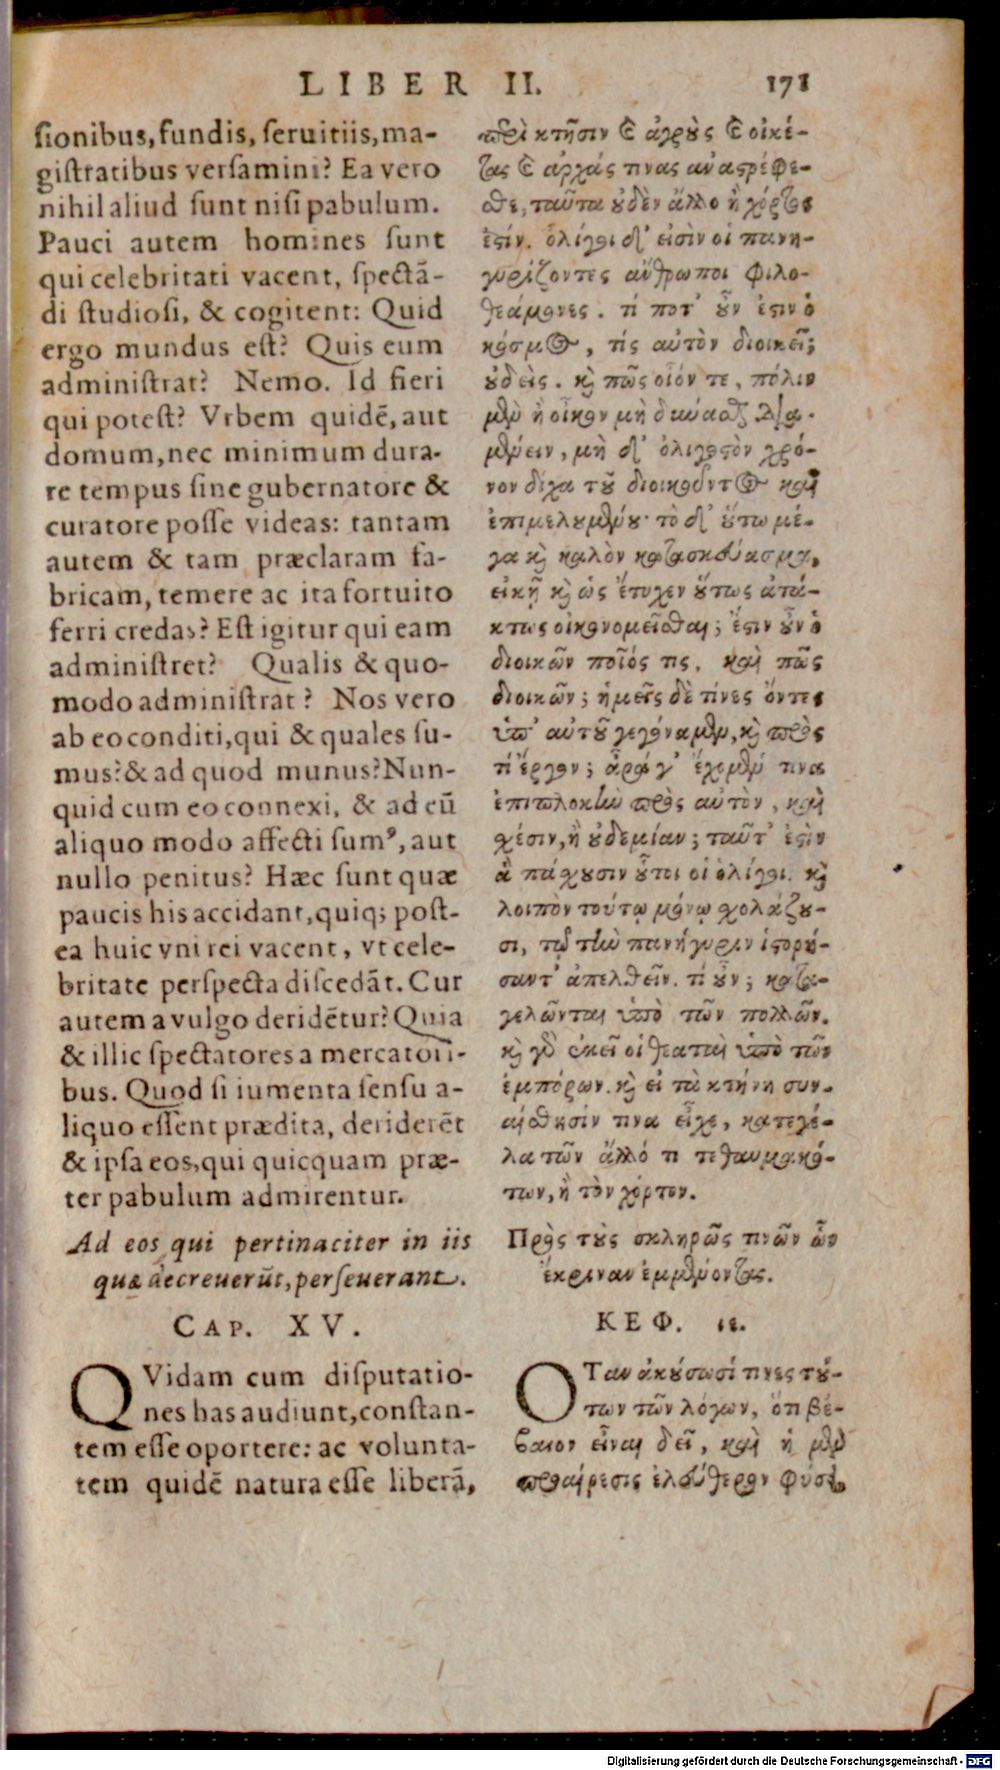 LIBER II. 171
sionibus, fundis, seruitiis, ma-
gistratibus versamini? Ea vero
nihil aliud sunt nisi pabulum.
Pauci autem homines sunt
qui celebritati vacent, spectā-
di studiosi, & cogitent: Quid
ergo mundus est? Quis eum
administrat? Nemo. Id fieri
qui potest? Vrbem quidē, aut
domum, nec minimum dura-
re tempus sine gubernatore &
curatore posse videas: tantam
autem & tam præclaram fa-
bricam, temere ac ita fortuito
ferri credas? Est igitur qui eam
administret? Qualis & quo-
modo administrat? Nos vero
ab eo conditi, qui & quales su-
mus? & ad quod munus? Nun-
quid cum eo connexi, & ad eū
aliquo modo affecti sumꝰ, aut
nullo penitus? Hæc sunt quæ
paucis his accidant, quiq; post-
ea huic vni rei vacent, vt cele-
britate perspecta discedāt. Cur
autem a vulgo deridētur? Quia
& illic spectatores a mercatori-
bus. Quod si iumenta sensu a-
liquo essent prædita, deriderēt
& ipsa eos, qui quicquam præ-
ter pabulum admirentur.
Ad eos qui pertinaciter in iis
quæ decreuerūt, perseuerant.
CAP. XV.
QVidam cum disputatio-
nes has audiunt, constan-
tem esse oportere: ac volunta-
tem quidē natura esse liberā,
περὶ κτῆσιν καὶ ἀγροὺς καὶ οἰκέ-
τας καὶ ἀρχάς τινας ἀναστρέφε-
σθε, ταῦτα οὐδὲν ἄλλο ἢ χόρτος
ἐστίν. ὀλίγοι δ' εἰσὶν οἱ πανη-
γυρίζοντες ἄνθρωποι φιλο-
θεάμονες. τί ποτ' οὖν ἐστιν ὁ
κόσμος, τίς αὐτὸν διοικεῖ;
οὐδείς. καὶ πῶς οἷόν τε, πόλιν
μὲν ἢ οἶκον μὴ δύνασθαι δια-
μένειν, μὴ δ' ὀλιγοστὸν χρό-
νον δίχα τοῦ διοικοῦντος καὶ
ἐπιμελουμένου· τὸ δ' οὕτω μέ-
γα καὶ καλὸν κατασκεύασμα,
εἰκῇ καὶ ὡς ἔτυχεν οὕτως ἀτά-
κτως οἰκονομεῖσθαι; ἔστιν οὖν ὁ
διοικῶν ποῖός τις, καὶ πῶς
διοικῶν; ἡμεῖς δὲ τίνες ὄντες
ὑπ' αὐτοῦ γεγόναμεν, καὶ πρὸς
τί ἔργον; ἆρά γ' ἔχομέν τινα
ἐπιπλοκὴν πρὸς αὐτὸν, καὶ
χέσιν, ἢ οὐδεμίαν; ταῦτ' ἐστὶν
ἃ πάχουσιν οὗτοι οἱ ὀλίγοι. καὶ
λοιπὸν τούτῳ μόνῳ χολάζου-
σι, τῷ τὴν πανήγυριν ἱστορή-
σαντ' ἀπελθεῖν. τί οὖν; κατα-
γελῶνται ὑπὸ τῶν πολλῶν.
καὶ γὰρ ἐκεῖ οἱ θεαταὶ ὑπὸ τῶν
ἐμπόρων. καὶ εἰ τὰ κτήνη συν-
αίσθησίν τινα εἶχε, κατεγέ-
λα τῶν ἄλλό τι τεθαυμακό-
των, ἢ τὸν χόρτον.
Πρὸς τοὺς σκληρῶς τινῶν ὧν
ἔκριναν ἐμμένοντας.
ΚΕΦ. ιε.
ΟΤαν ἀκούσωσί τινες τού-
των τῶν λόγων, ὅτι βέ-
βαιον εἶναι δεῖ, καὶ ἡ μὲν
προαίρεσις ἐλεύθερον φύσει
Digitalisierung gefördert durch die Deutsche Forschungsgemeinschaft - DFG